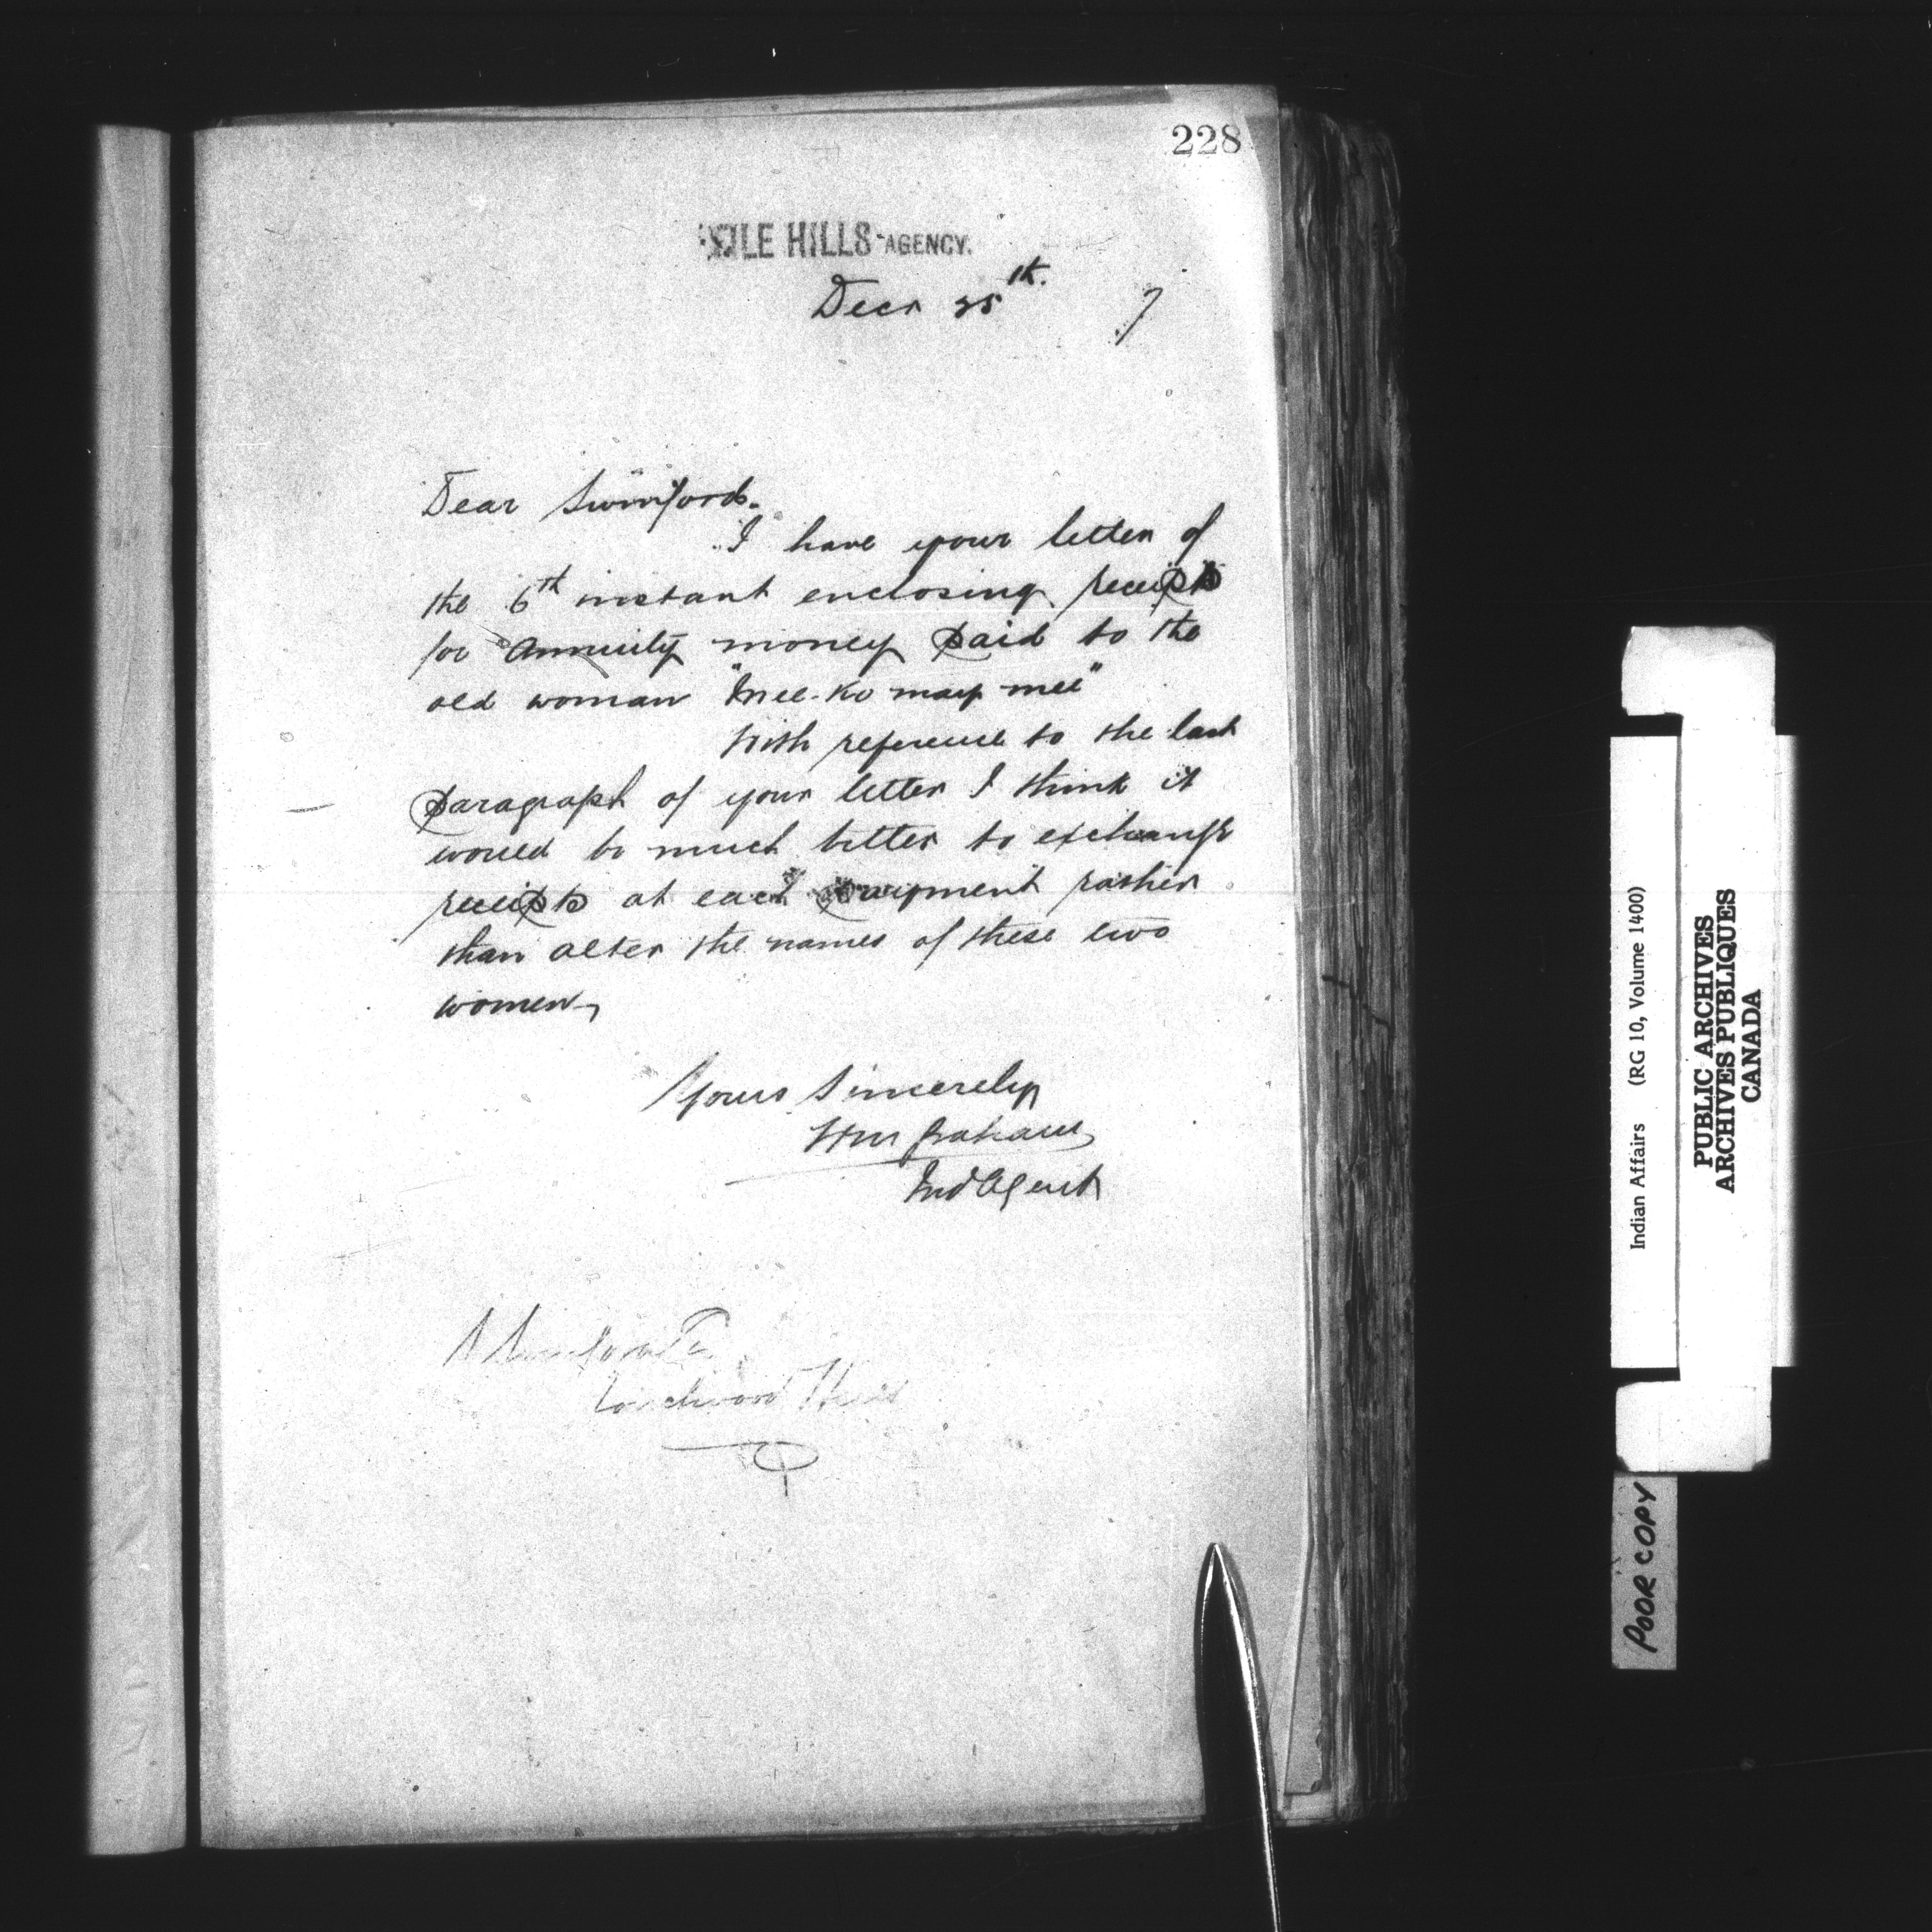 228
FILE HILLS AGENCY.
Decr 25th. 7
Dear Swinford.
I have your letter of
the 6th instant enclosing receipts
for annuity money paid to the
old woman "Mee-ko may mee"
With reference to the last
paragraph of your letter I think it
would be much better to exchange
receipts at each payment rather
than alter the names of these two
women
Yours Sincerely
Wm Graham
Ind Agent
S Swinford
Touchwood Hills
Indian Affairs (RG 10, Volume 1400)
PUBLIC ARCHIVES
ARCHIVES PUBLIQUES
CANADA
POOR COPY